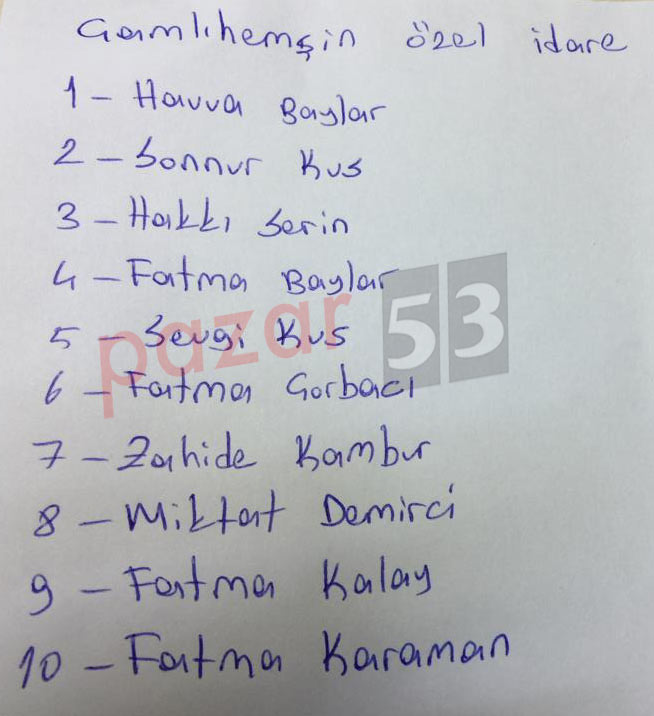 Çamlıhemşin özel idare
1 - Havva Baylar
2 - Sonnur Kus
3 - Hakkı Serin
4 - Fatma Baylar
5 - Sevgi Kus
6 - Fatma Corbacı
7 - Zahide Kambur
8 - Miktat Demirci
9 - Fatma Kalay
10 - Fatma Karaman
pazar 53